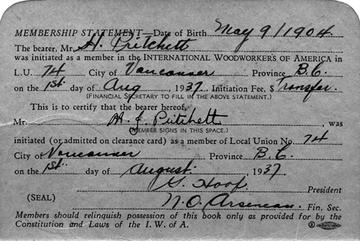 MEMBERSHIP STATEMENT—Date of Birth May 9/1904
The bearer, Mr. H. Pritchett
was initiated as a member in the INTERNATIONAL WOODWORKERS OF AMERICA in
L.U. 74 City of Vancouver Province B.C.
on the 1st. day of Aug 1937. Initiation Fee, $ Transfer.
(FINANCIAL SECRETARY TO FILL IN THE ABOVE STATEMENT.)
This is to certify that the bearer hereof,
Mr. H. J. Pritchett, was
(MEMBER SIGNS IN THIS SPACE.)
initiated (or admitted on clearance card) as a member of Local Union No. 74
City of Vancouver Province B.C.
on the 1st. day of August. 1937
Hoof President
(SEAL) N.O. Arseneau. Fin. Sec.
Members should relinquish possession of this book only as provided for by the
Constitution and Laws of the I.W. of A.